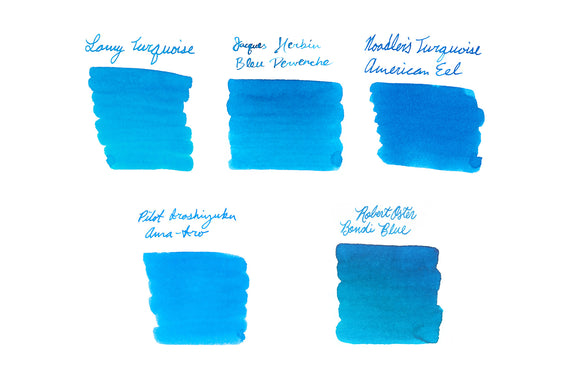 Lamy Turquoise
Jacques Herbin
Bleu Pervenche
Noodler's Turquoise
American Eel
Pilot Iroshizuku
Ama-Iro
Robert Oster
Bondi Blue